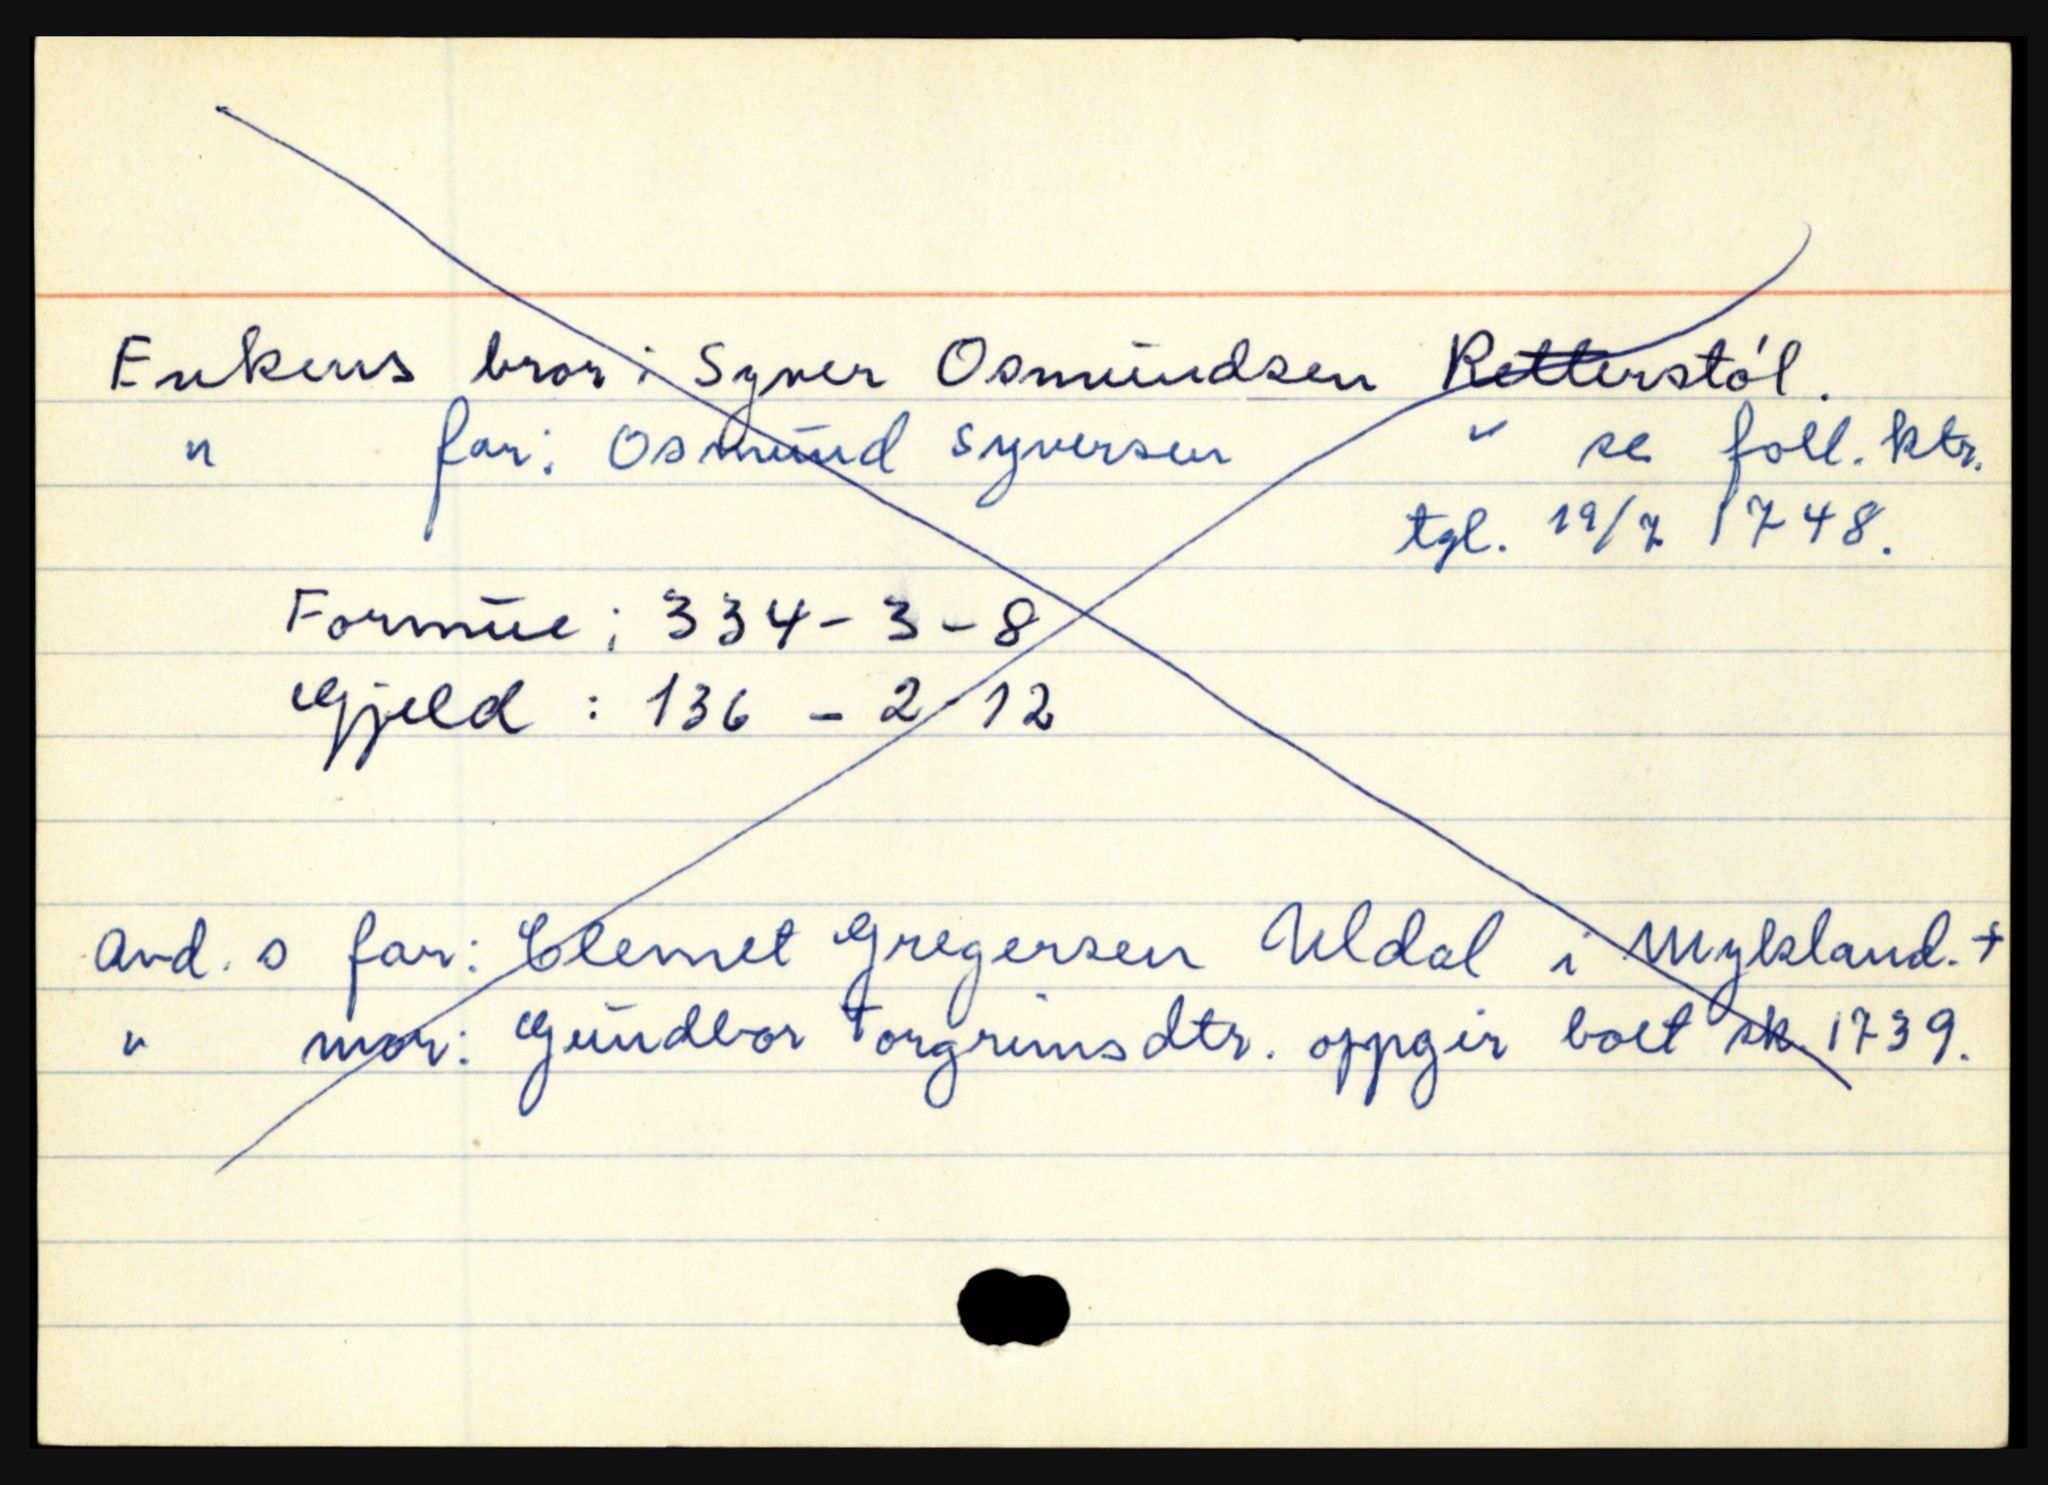 Enkens bror: Syver Osmundsen Retterstøl.
" far: Osmund Syversen " se foll. ktr.
tgl. 19/7 1748.
Formue: 334 - 3 - 8
Gjeld : 136 - 2 - 12
Avd. s far: Clemet Gregersen Uldal i Mykland. +
" mor: Gundbor Torgrimsdtr. oppgir boet sk. 1739.